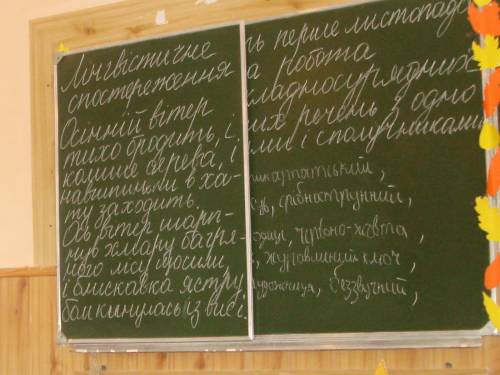 Лінгвістичне
спостереження
Осінній вітер
тихо бродить, і
колише дерева, і
навшпиньки в ха-
ту заходить.
Ось вітер шарп-
нув хмару багря-
ного лісу
і блискавка
кинулась із висі.
нь перше листопада
а робота
складносурядних
их речень з одно
ими і сполучниками
икарпатський,
срібнострунний,
червоно-жовта
, журавлиний ключ,
беззвучний,